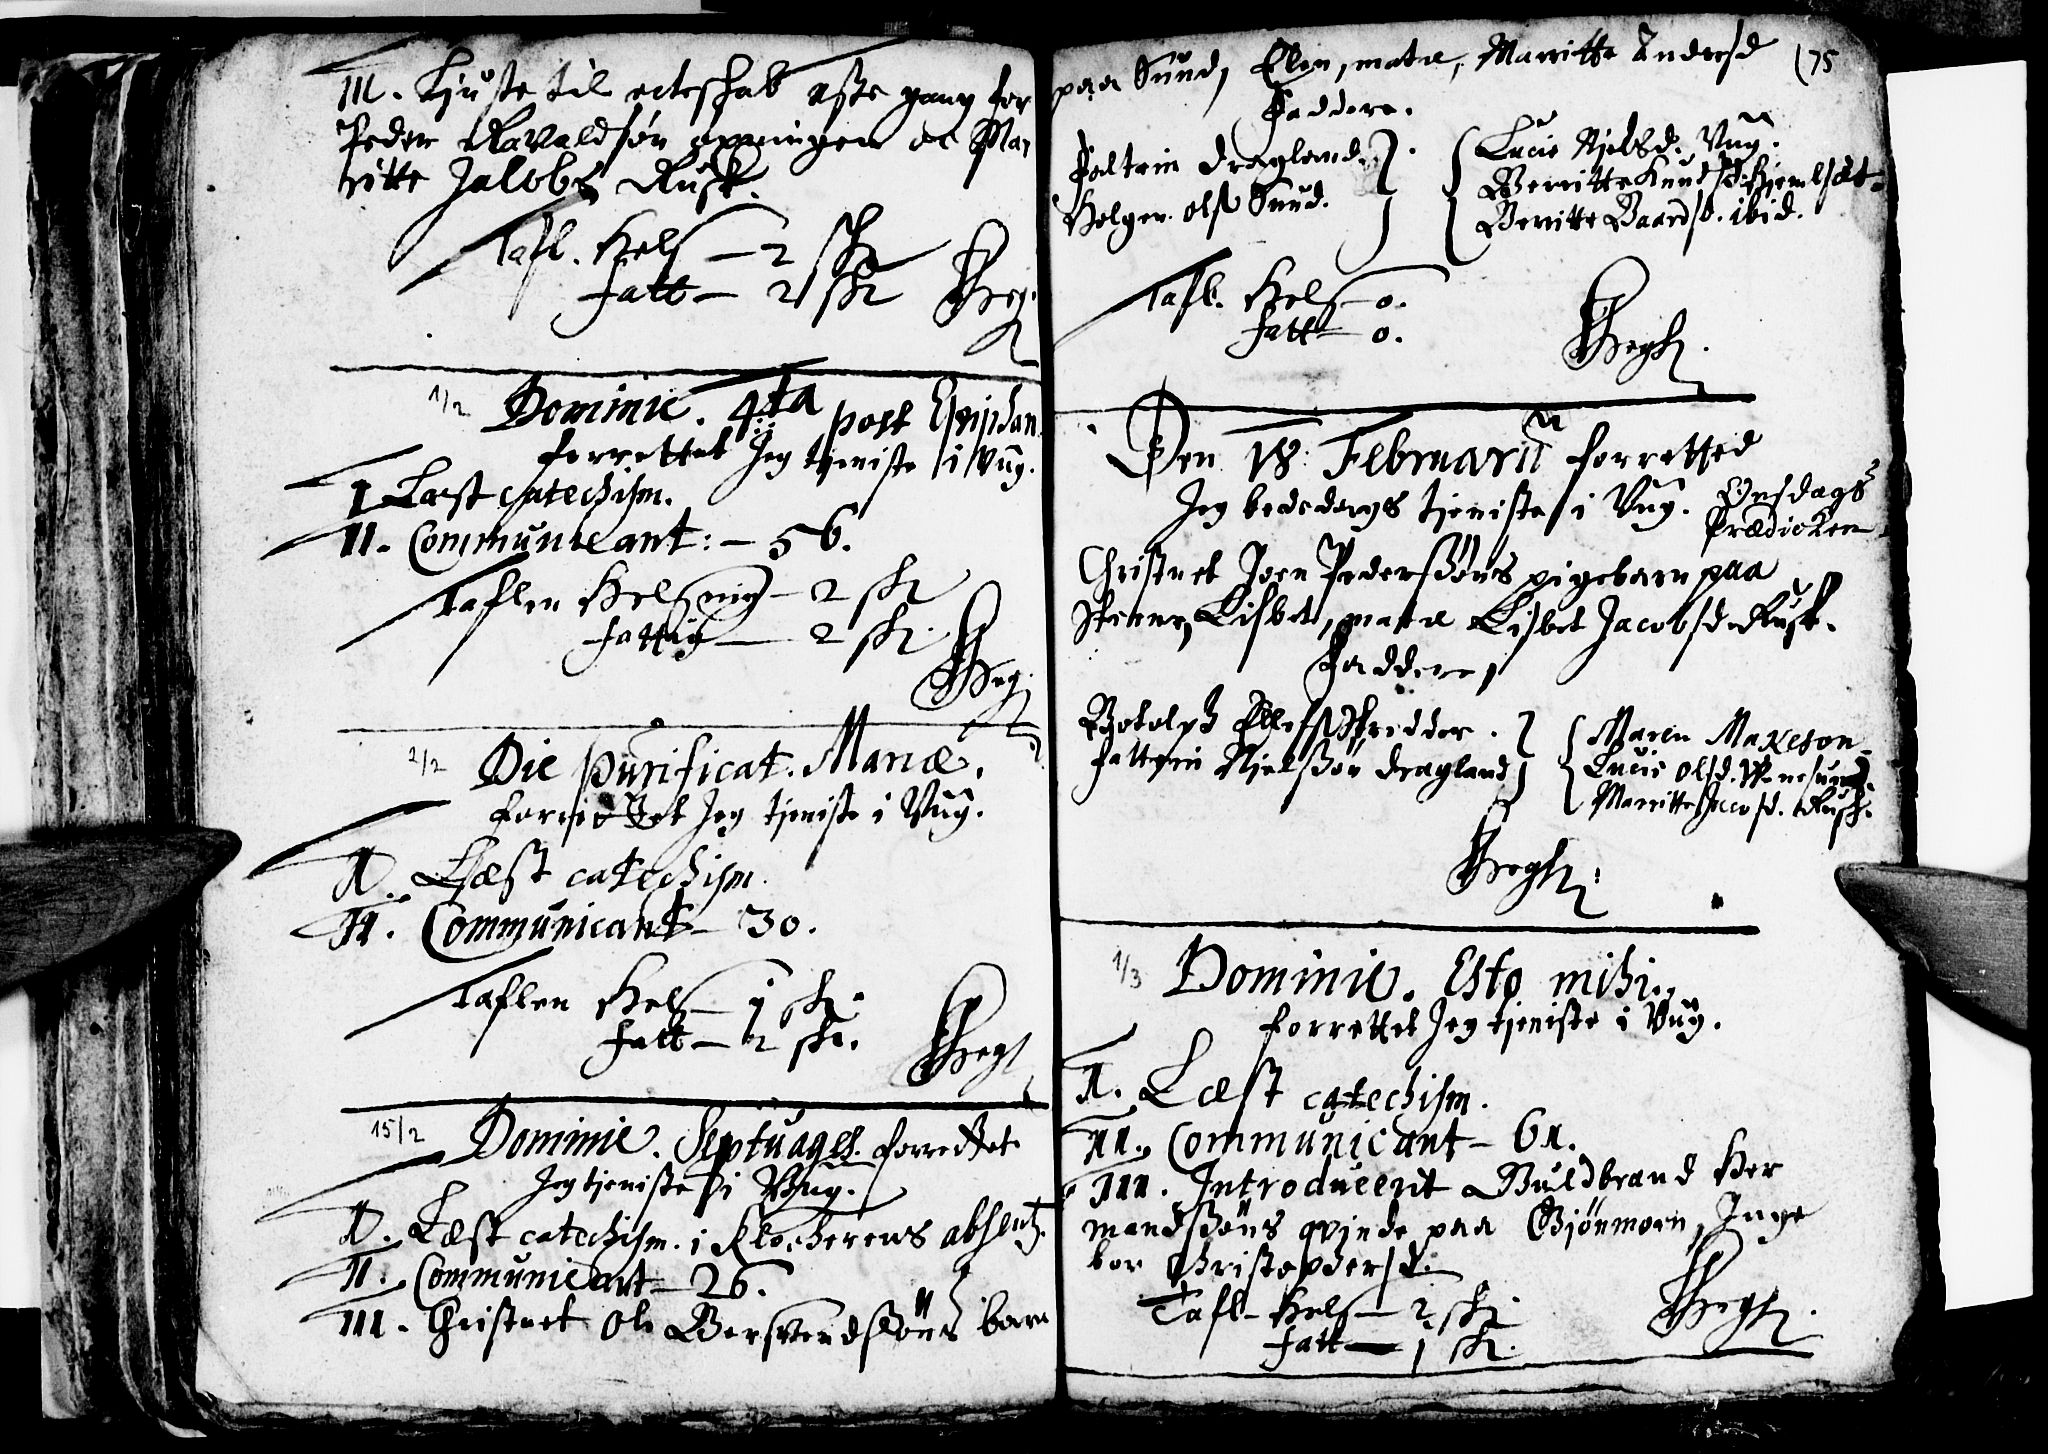 III. Liuste til ecteskab 1ste gang for
Peder Ravaldsøn oc Mar
ritte Jacobs Rusk.
Tafl. Kels — 2 sk
fatt — 2 sk
1/2 Dominic. 4ta post Epiphan
forrettet Jeg tjeniste i Vug.
I Læst catechism.
II. Communicant: — 56.
Taflen Kels — 2 sk
fattig — 2 sk.
2/2 Die Purificat. Mariæ.
forrettet Jeg tjeniste i Vug.
I. Læst catechism.
II. Communicant — 30.
Taflen Kels — 1 sk.
fatt — 2 sk.
15/2 Dominic. Septuages. forrettet
Jeg tjeniste i Vug.
I. Læst catechism. i Klockerens absentz.
II. Communicant — 26.
III. Christnet Ole Bersvendsøns barn
paa Sund, Elen, matre, Marritte Andersd
75
Faddere.
Dragland
Holger Ols Sund.
Lucie Njelsd. Vug.
Berritte Knudsd
Berritte Baardsd. ibid.
Tafl. Kels — 0.
fatt — 0.
Den 18. Februarii forretted
Jeg bededags tjeniste i Vug. Onsdags
Prædicken
Christnet Joen Pedersøns pigebarn paa
Lisbet, matre Lisbet Jacobsd. Rusk.
Faddere,
Botolph
Njelsøn Dragland
Maren
Lucie Olsd.
Marritte Jacosd. Rusk.
1/3 Dominic. Esto mihi.
forrettet Jeg tjeniste i Vug.
I. Læst catechism.
II. Communicant — 61.
III. Introducerit Guldbrand Her
mandsøns qvinde paa Gjønmoen, Inge
bor Christophersd.
Tafl — Kels — 2 sk.
fatt — 1 sk.